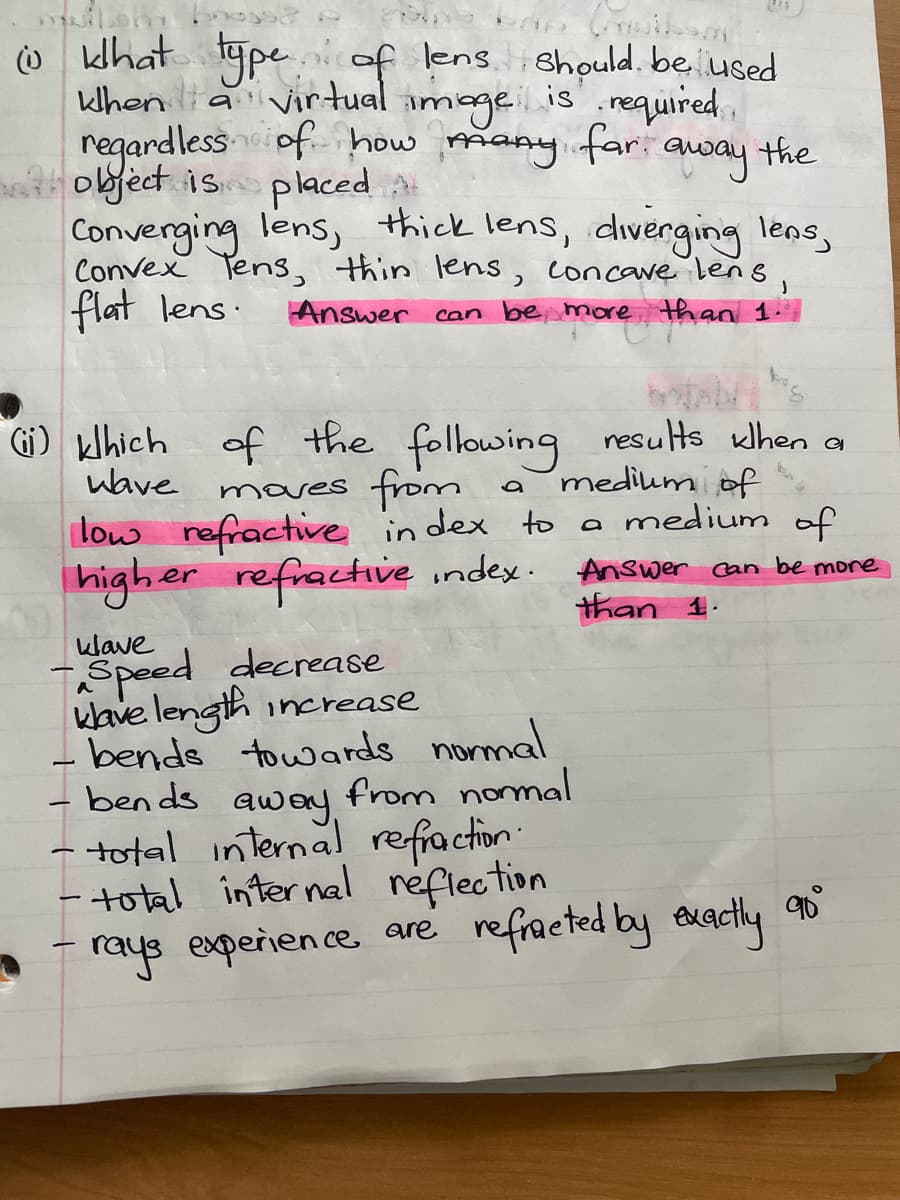 (i) What type of lens should be used
When a virtual image is required,
regardless of how many far away the
object is placed
Converging lens, thick lens, diverging lens,
Convex lens, thin lens, concave lens,
flat lens. Answer can be more than 1.
(ii) Which of the following results when a
wave moves from a medium of
low refractive index to a medium of
higher refractive index. Answer can be more
than 1.
- wave Speed decrease
wave length increase
- bends towards normal
- bends away from normal
- total internal refraction.
- total internal reflection
- rays experience are refracted by exactly 90°